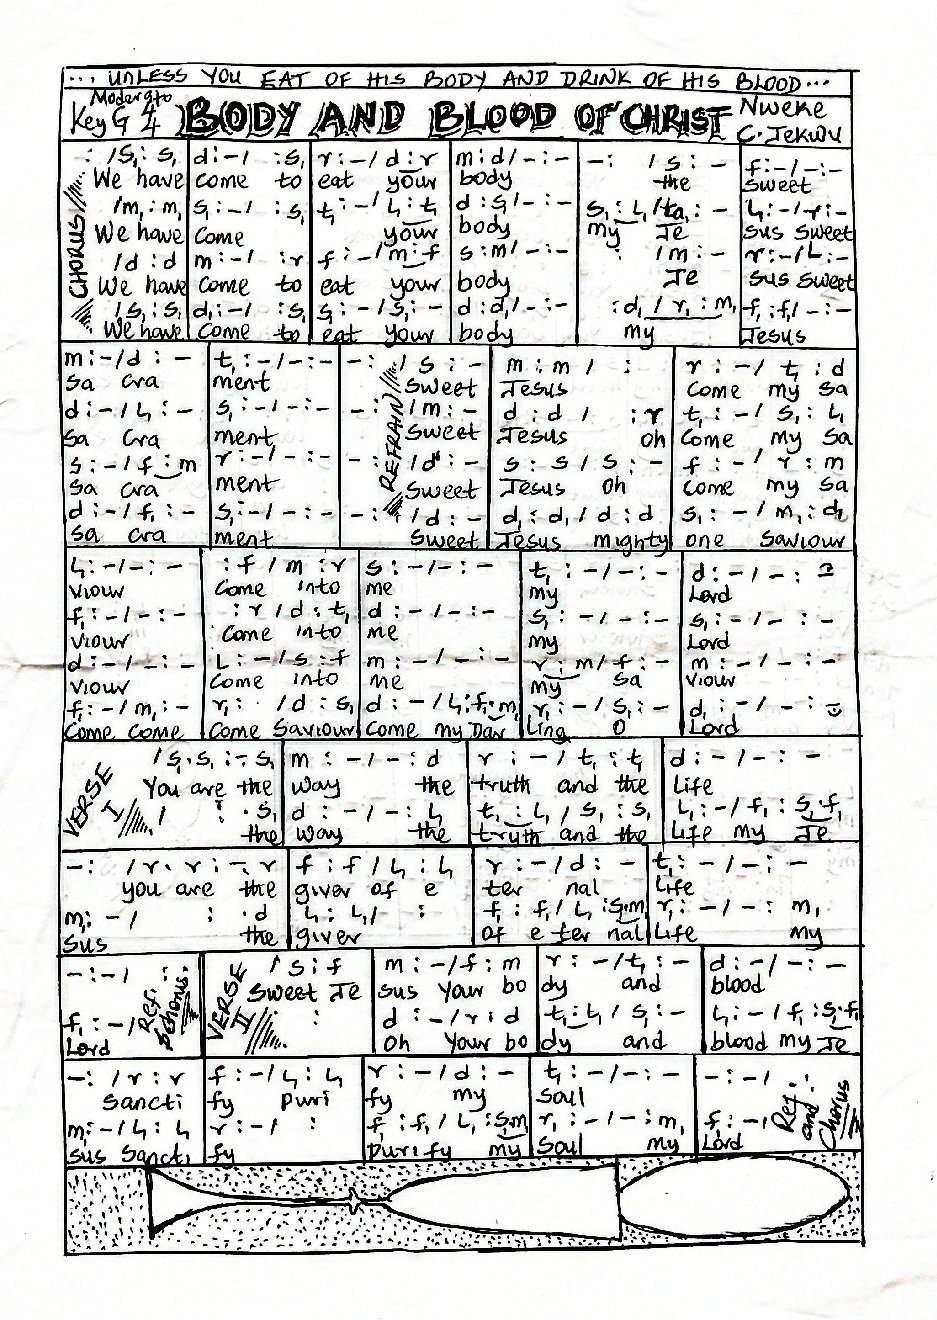 ... UNLESS YOU EAT OF HIS BODY AND DRINK OF HIS BLOOD...
Moderato
Key G 4/4
BODY AND BLOOD OF CHRIST
Nweke
C. Jekwu
CHORUS
: /s₁ : s₁ d : - / : s₁ r : - / d : r m : d / - : - - : / s : - f : - / - : -
We have come to eat your body the sweet
/m₁ : m₁ s₁ : - / : s₁ t₁ : - / l₁ : t₁ d : s₁ / - : - s₁ : l₁ / ta₁ : - l₁ : - / r : -
We have come your body my Je sus sweet
/d : d m : - / : r f : - / m : f s : m / - : - : / m : - r : - / l : -
We have come to eat your body Je sus sweet
/s₁ : s₁ d₁ : - / : s₁ s₁ : - / s₁ : - d : d₁ / - : - : d₁ / r₁ : m₁ f₁ : f₁ / - : -
We have come to eat your body my Jesus
m : - / d : - t₁ : - / - : - - : - / s : - m : m / : r : - / t₁ : d
Sa cra ment Sweet Jesus come my Sa
REFRAIN
d : - / l₁ : - s₁ : - / - : - - : / m : - d : d / : r t₁ : - / s₁ : l₁
Sa cra ment Sweet Jesus oh come my Sa
s : - / f : m r : - / - : - - : / d : - s : s / s : - f : - / r : m
Sa cra ment Sweet Jesus oh come my Sa
d : - / f₁ : - s₁ : - / - : - - : - / d : - d₁ : d₁ / d : d s₁ : - / m₁ : d₁
Sa cra ment Sweet Jesus mighty one Saviour
l₁ : - / - : - : f / m : r s : - / - : - t₁ : - / - : - d : - / - :
viour come into me my Lord
f₁ : - / - : - : r / d : t₁ d : - / - : - s₁ : - / - : - s₁ : - / - : -
viour come into me my Lord
d : - / - : - l : - / s : f m : - / - : - r : m / f : - m : - / - : -
viour come into me my Sa viour
f₁ : - / m₁ : - r₁ : / d : s₁ d : - / l₁ : f₁ . m₁ r₁ : - / s₁ : - d₁ : - / - :
come come come Saviour come my Dar ling O Lord
VERSE I
/ s₁ . s₁ : - . s₁ m : - / - : d r : - / t₁ : t₁ d : - / - : -
You are the way the truth and the life
/ : . s₁ d : - / - : l₁ t₁ : l₁ / s₁ : s₁ l₁ : - / f₁ : s₁ . f₁
the way the truth and the life my Je
- : / r . r : - . r f : f / l₁ : l₁ r : - / d : - t₁ : - / - : -
you are the giver of e ter nal life
m₁ : - / : . d l₁ : l₁ / : f₁ : f₁ / l₁ : s₁ . m₁ r₁ : - / - : m₁
sus the giver of e ter nal life my
- : - / Ref. & chorus.
f₁ : - /
Lord
VERSE II
/ s : f m : - / f : m r : - / t₁ : - d : - / - : -
Sweet Je sus your bo dy and blood
: d : - / r : d t₁ : l₁ / s₁ : - l₁ : - / f₁ : s₁ . f₁
oh your bo dy and blood my Je
- : / r : r f : - / l₁ : l₁ r : - / d : - t₁ : - / - : - - : - /
Sancti fy puri fy my soul
m₁ : - / l₁ : l₁ r : - / : f₁ : f₁ / l₁ : s₁ . m₁ r₁ : - / - : m₁ f₁ : - /
sus Sancti fy purify my soul my Lord
Ref and Chorus